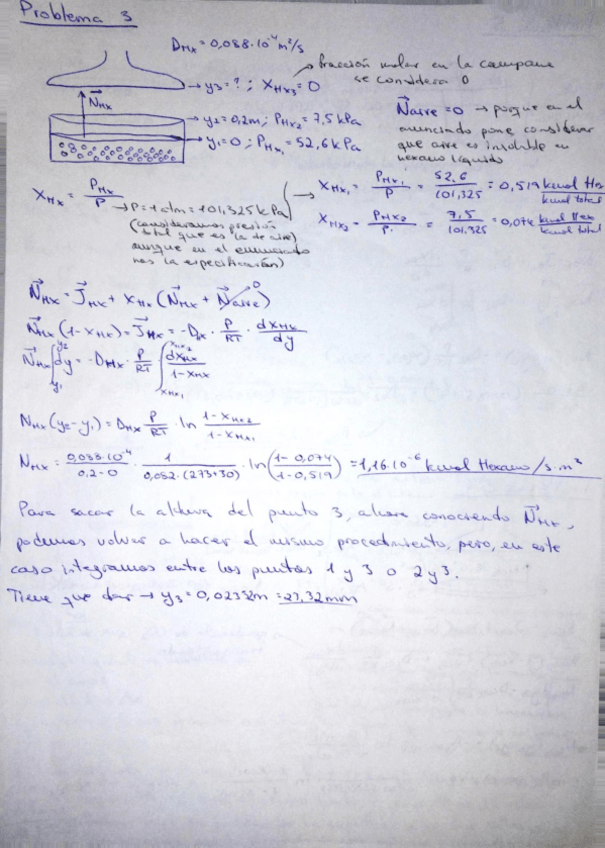 Problema 3
D_Hx = 0,088·10⁻⁴ m²/s
→ fracción molar en la campana
se considera 0
→ y₃ = ? ; X_Hx₃ = 0
N⃗_Hx
→ y₂ = 0,2m ; P_Hx₂ = 7,5 kPa
→ y₁ = 0 ; P_Hx₁ = 52,6 kPa
N⃗aire = 0 → porque en el
enunciado pone considerar
que aire es insoluble en
hexano líquido
X_Hx = P_Hx / P
→ P = 1 atm = 101,325 kPa
(consideramos presión
total que es la de aire,
aunque en el enunciado
nos la especificarán)
X_Hx₁ = P_Hx₁ / P = 52,6 / 101,325 = 0,519 kmol Hex / kmol total
X_Hx₂ = P_Hx₂ / P = 7,5 / 101,325 = 0,074 kmol Hex / kmol total
N⃗_Hx = J⃗_Hx + X_Hx (N⃗_Hx + N⃗aire) 0
N⃗_Hx (1 - X_Hx) = J⃗_Hx = -D_Hx · P/RT · dX_Hx/dy
N⃗_Hx ∫_y₁^y₂ dy = -D_Hx · P/RT ∫_X_Hx₁^X_Hx₂ dX_Hx / 1-X_Hx
N_Hx (y₂ - y₁) = D_Hx P/RT · ln 1-X_Hx₂ / 1-X_Hx₁
N_Hx = 0,088·10⁻⁴ / 0,2-0 · 1 / 0,082·(273+30) · ln(1-0,074 / 1-0,519) = 1,16·10⁻⁶ kmol Hexano/s·m²
Para sacar la altura del punto 3, ahora conociendo N⃗_Hx,
podemos volver a hacer el mismo procedimiento, pero, en este
caso integramos entre los puntos 1 y 3 o 2 y 3.
Tiene que dar → y₃ = 0,02332m = 27,32mm